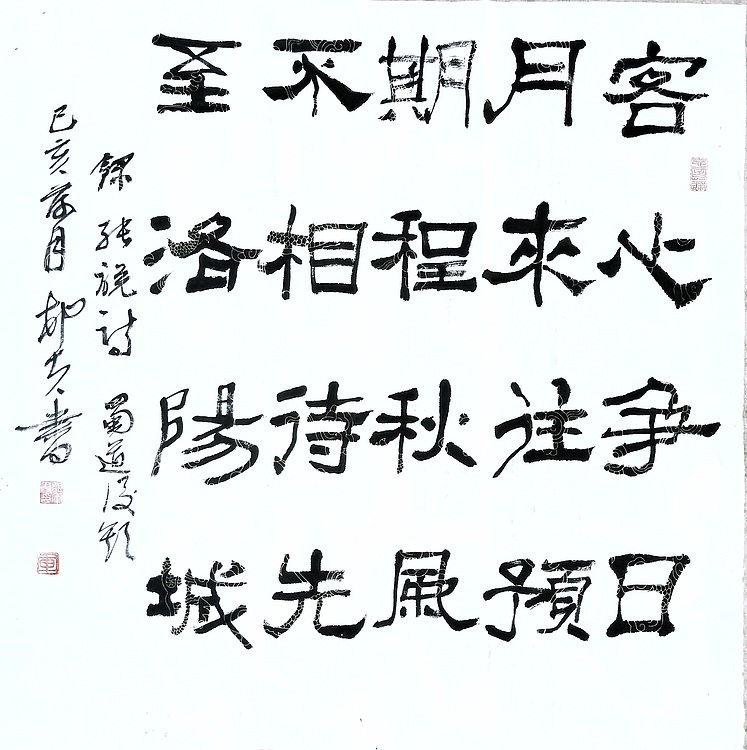 客心争日
月來往預
期程秋風
不相待先
至洛陽城
錄張說詩 蜀道後期
己亥荷月 書